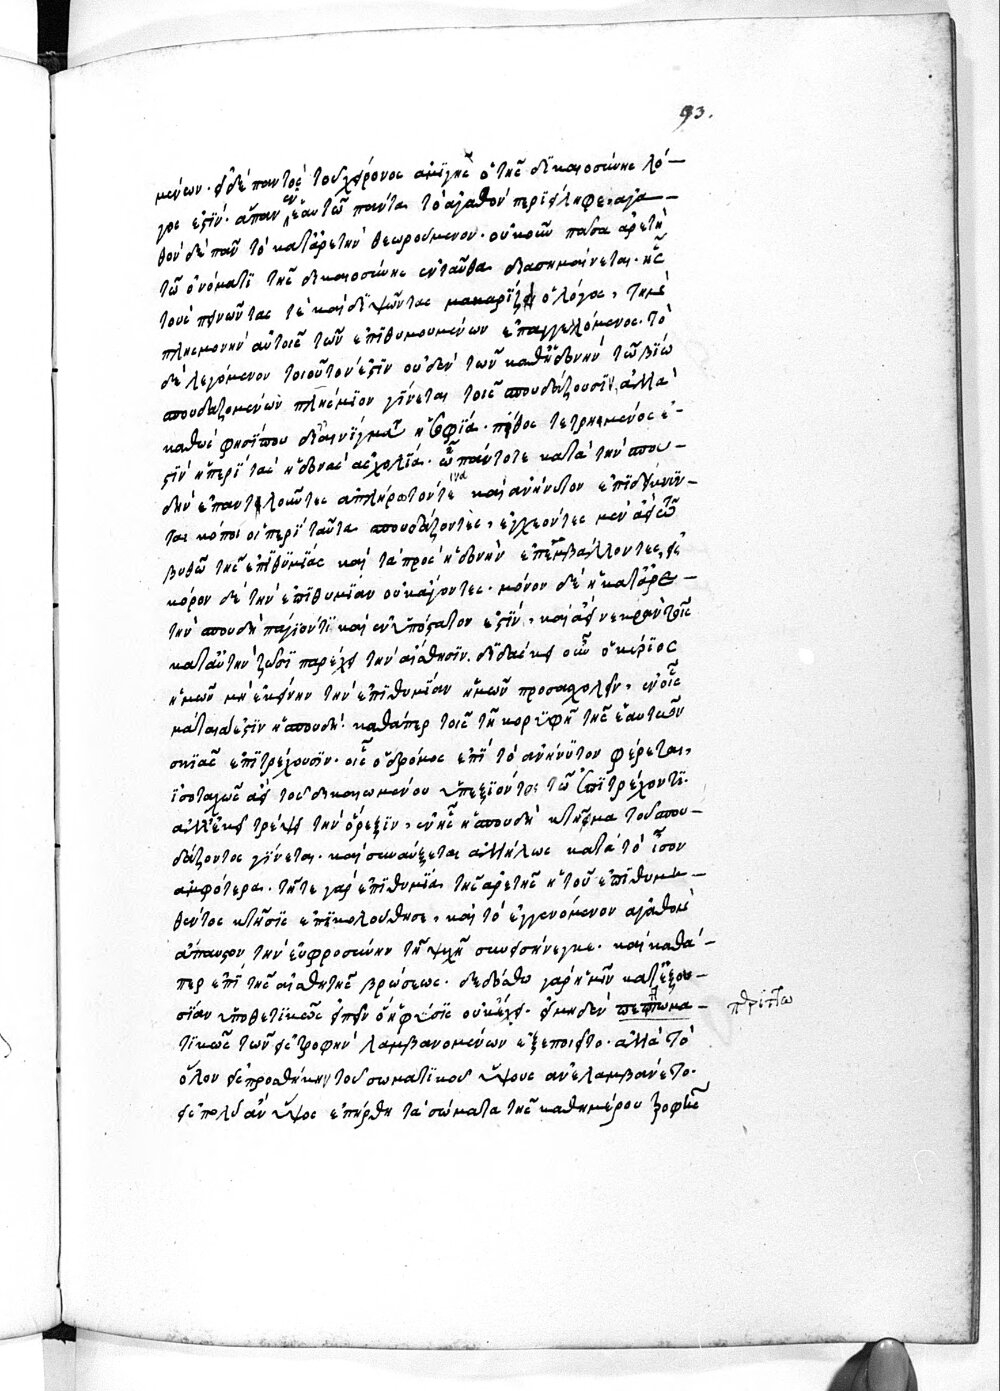 93.
μένων. εἰ δὲ παντὸς τοῦ χείρονος ἀμιγὴς ὁ τῆς δικαιοσύνης λό-
γος ἐστίν. ἅπαν ἐν ἑαυτῷ πάντα τὸ ἀγαθὸν περιείληφε. ἀγα-
θὸν δὲ πᾶν τὸ κατ' ἀρετὴν θεωρούμενον. οὐκοῦν πᾶσα ἀρετὴ
τῷ ὀνόματι τῆς δικαιοσύνης ἐνταῦθα διασημαίνεται. ἧς
τοὺς πεινῶντας τὲ καὶ διψῶντας μακαρίζει ὁ λόγος, τὴν
πλησμονὴν αὐτοῖς τῶν ἐπιθυμουμένων ἐπαγγελόμενος. τὸ
δὲ λεγόμενον τοιοῦτον ἐστὶν οὐδὲν τῶν καθ' ἡδονὴν τῷ βίῳ
σπουδαζομένων πλήσμιον γίνεται τοῖς σπουδάζουσιν, ἀλλὰ
καθώς φησί που δι' αἰνίγματος ἡ σοφία. πίθος τετρημένος ἐ-
στὶν ἡ περὶ τὰς ἡδονὰς ἀσχολία. ὃν πάντοτε κατὰ τὴν σπου-
δὴν ἐπαντλοῦντες ἀπλήρωτόν τινα καὶ ἀνήνυτον ἐπιδείκνυν-
ται κόπον οἱ περὶ ταῦτα σπουδάζοντες, ἐγχέοντες μὲν ἀεὶ τῷ
βυθῷ τῆς ἐπιθυμίας καὶ τὰ πρὸς ἡδονὴν ἐπεμβάλλοντες, εἰς
κόρον δὲ τὴν ἐπιθυμίαν οὐκ ἄγοντες. μόνον δὲ ἡ κατ' ἀρε-
τὴν σπουδὴ πάγιόν τι καὶ ἐνυπόστατον ἐστίν, καὶ
κατ' αὐτὴν ζῶσι παρέχει τὴν αἴσθησιν. διδάσκει οὖν ὁ κύριος
ἡμῶν μὴ ἐκείνην τὴν ἐπιθυμίαν ἡμῶν προσασχολεῖν, ἐν οἷς
ματαία ἐστὶν ἡ σπουδή. καθάπερ τοῖς τῇ κορυφῇ τῆς ἑαυτῶν
σκιᾶς ἐπιτρέχουσιν. οἷς ὁ δρόμος ἐπὶ τὸ ἀνήνυτον φέρεται,
ἰσοταχῶς ἀεὶ τοῦ διωκομένου ὑπεξιόντος τῷ ἐπιτρέχοντι.
ἀλλ' ἐκεῖ τρέψαι τὴν ὄρεξιν, ἐν ἧς ἡ σπουδὴ κτῆμα τοῦ σπου-
δάζοντος γίνεται. καὶ συναύξεται ἀλλήλως κατὰ τὸ ἶσον
ἀμφότερα. τῇ τε γὰρ ἐπιθυμίᾳ τῆς ἀρετῆς ἡ τοῦ ἐπιθυμη-
θέντος κτῆσις ἐπηκολούθησε, καὶ τὸ ἐγγενόμενον ἀγαθὸν
ἄπαυστον τὴν εὐφροσύνην τῇ ψυχῇ συνεισήνεγκε. καὶ καθά-
περ ἐπὶ τῆς αἰσθητῆς βρώσεως. δεδόσθω γὰρ ἡμῖν κατ' ἐξου-
σίαν ὑποθετικῶς εἰπεῖν ὃ ἡ φύσις οὐκ ἔχει. εἰ μηδὲν περιττωμα-
τικῶς τῶν εἰς τροφὴν λαμβανομένων ἐξεποιεῖτο. ἀλλὰ τὸ
ὅλον εἰς προσθήκην τοῦ σωματικοῦ ὕψους ἀνελαμβάνετο.
εἰς πολὺ ἂν ὕψος ἐπήρθη τὰ σώματα τῆς καθημέραν τροφῆς